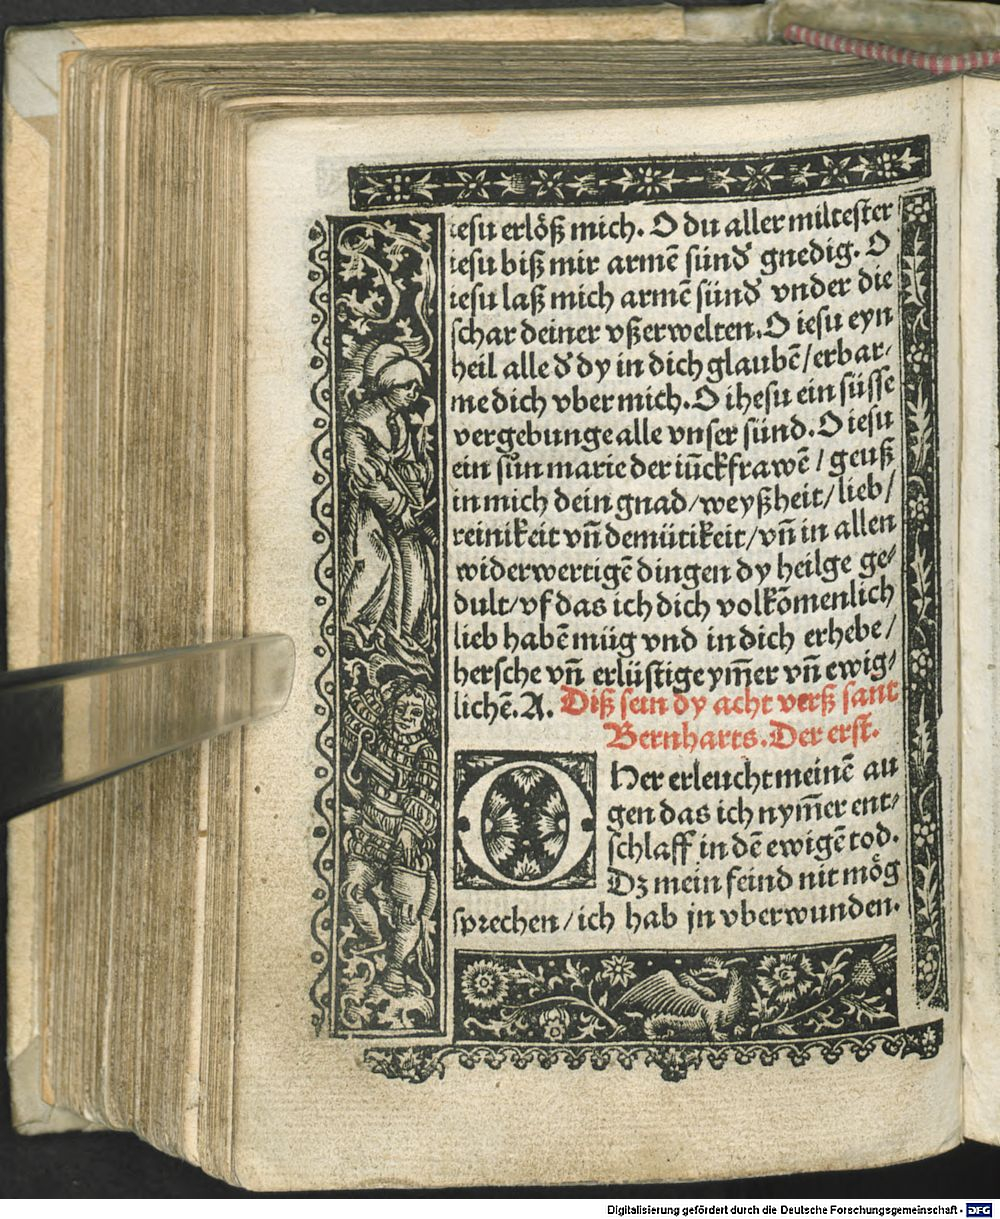 iesu erlöß mich. O du aller miltester
iesu biß mir armē sünd' gnedig. O
iesu laß mich armē sünd' vnder die
schar deiner vßerwelten. O iesu eyn
heil alle d' dy in dich glaubē / erbar⸗
me dich vber mich. O ihesu ein süsse
vergebunge alle vnser sünd. O iesu
ein sůn marie der iūckfrawē / geuß
in mich dein gnad / weyßheit / lieb /
reinikeit vn̄ demütikeit / vn̄ in allen
widerwertigē dingen dy heilge ge⸗
dult / vf das ich dich volkōmenlich
lieb habē müg vnd in dich erhebe /
hersche vn̄ erlüstige ym̄er vn̄ ewig⸗
lichē. A. Diß sein dy acht verß sant
Bernharts. Der erst.
O Her erleucht meinē au
gen das ich nym̄er ent⸗
schlaff in dē ewigē tod.
Dz mein feind nit mög
sprechen / ich hab jn vberwunden.
Digitalisierung gefördert durch die Deutsche Forschungsgemeinschaft - DFG